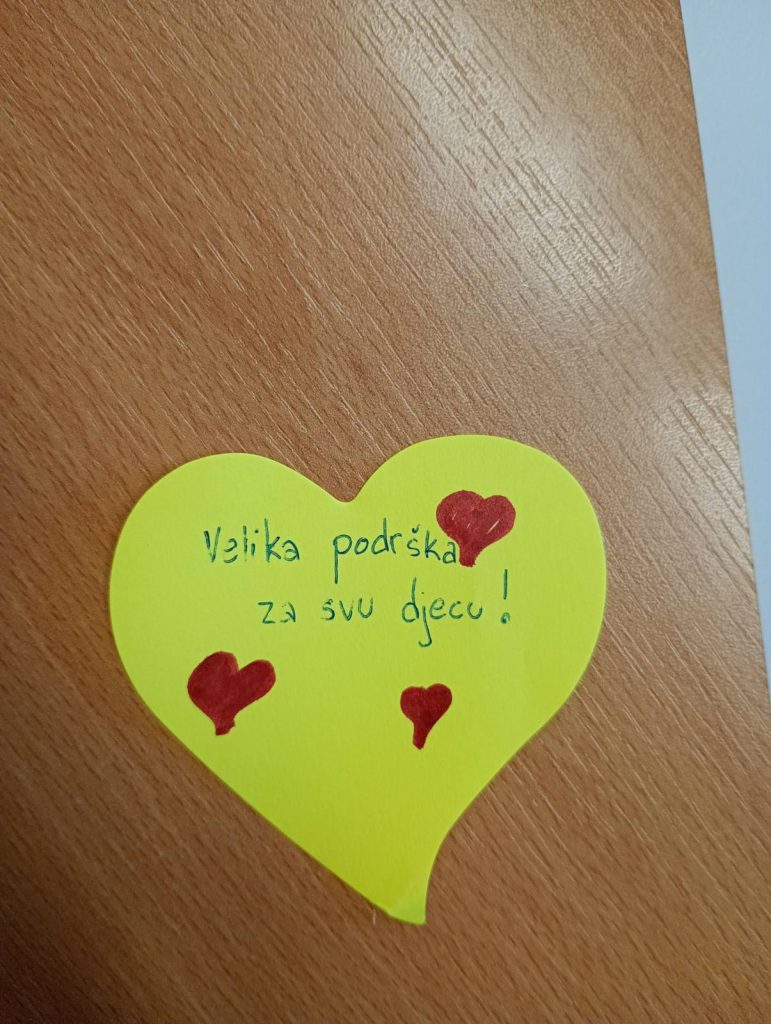 Velika podrška
za svu djecu!